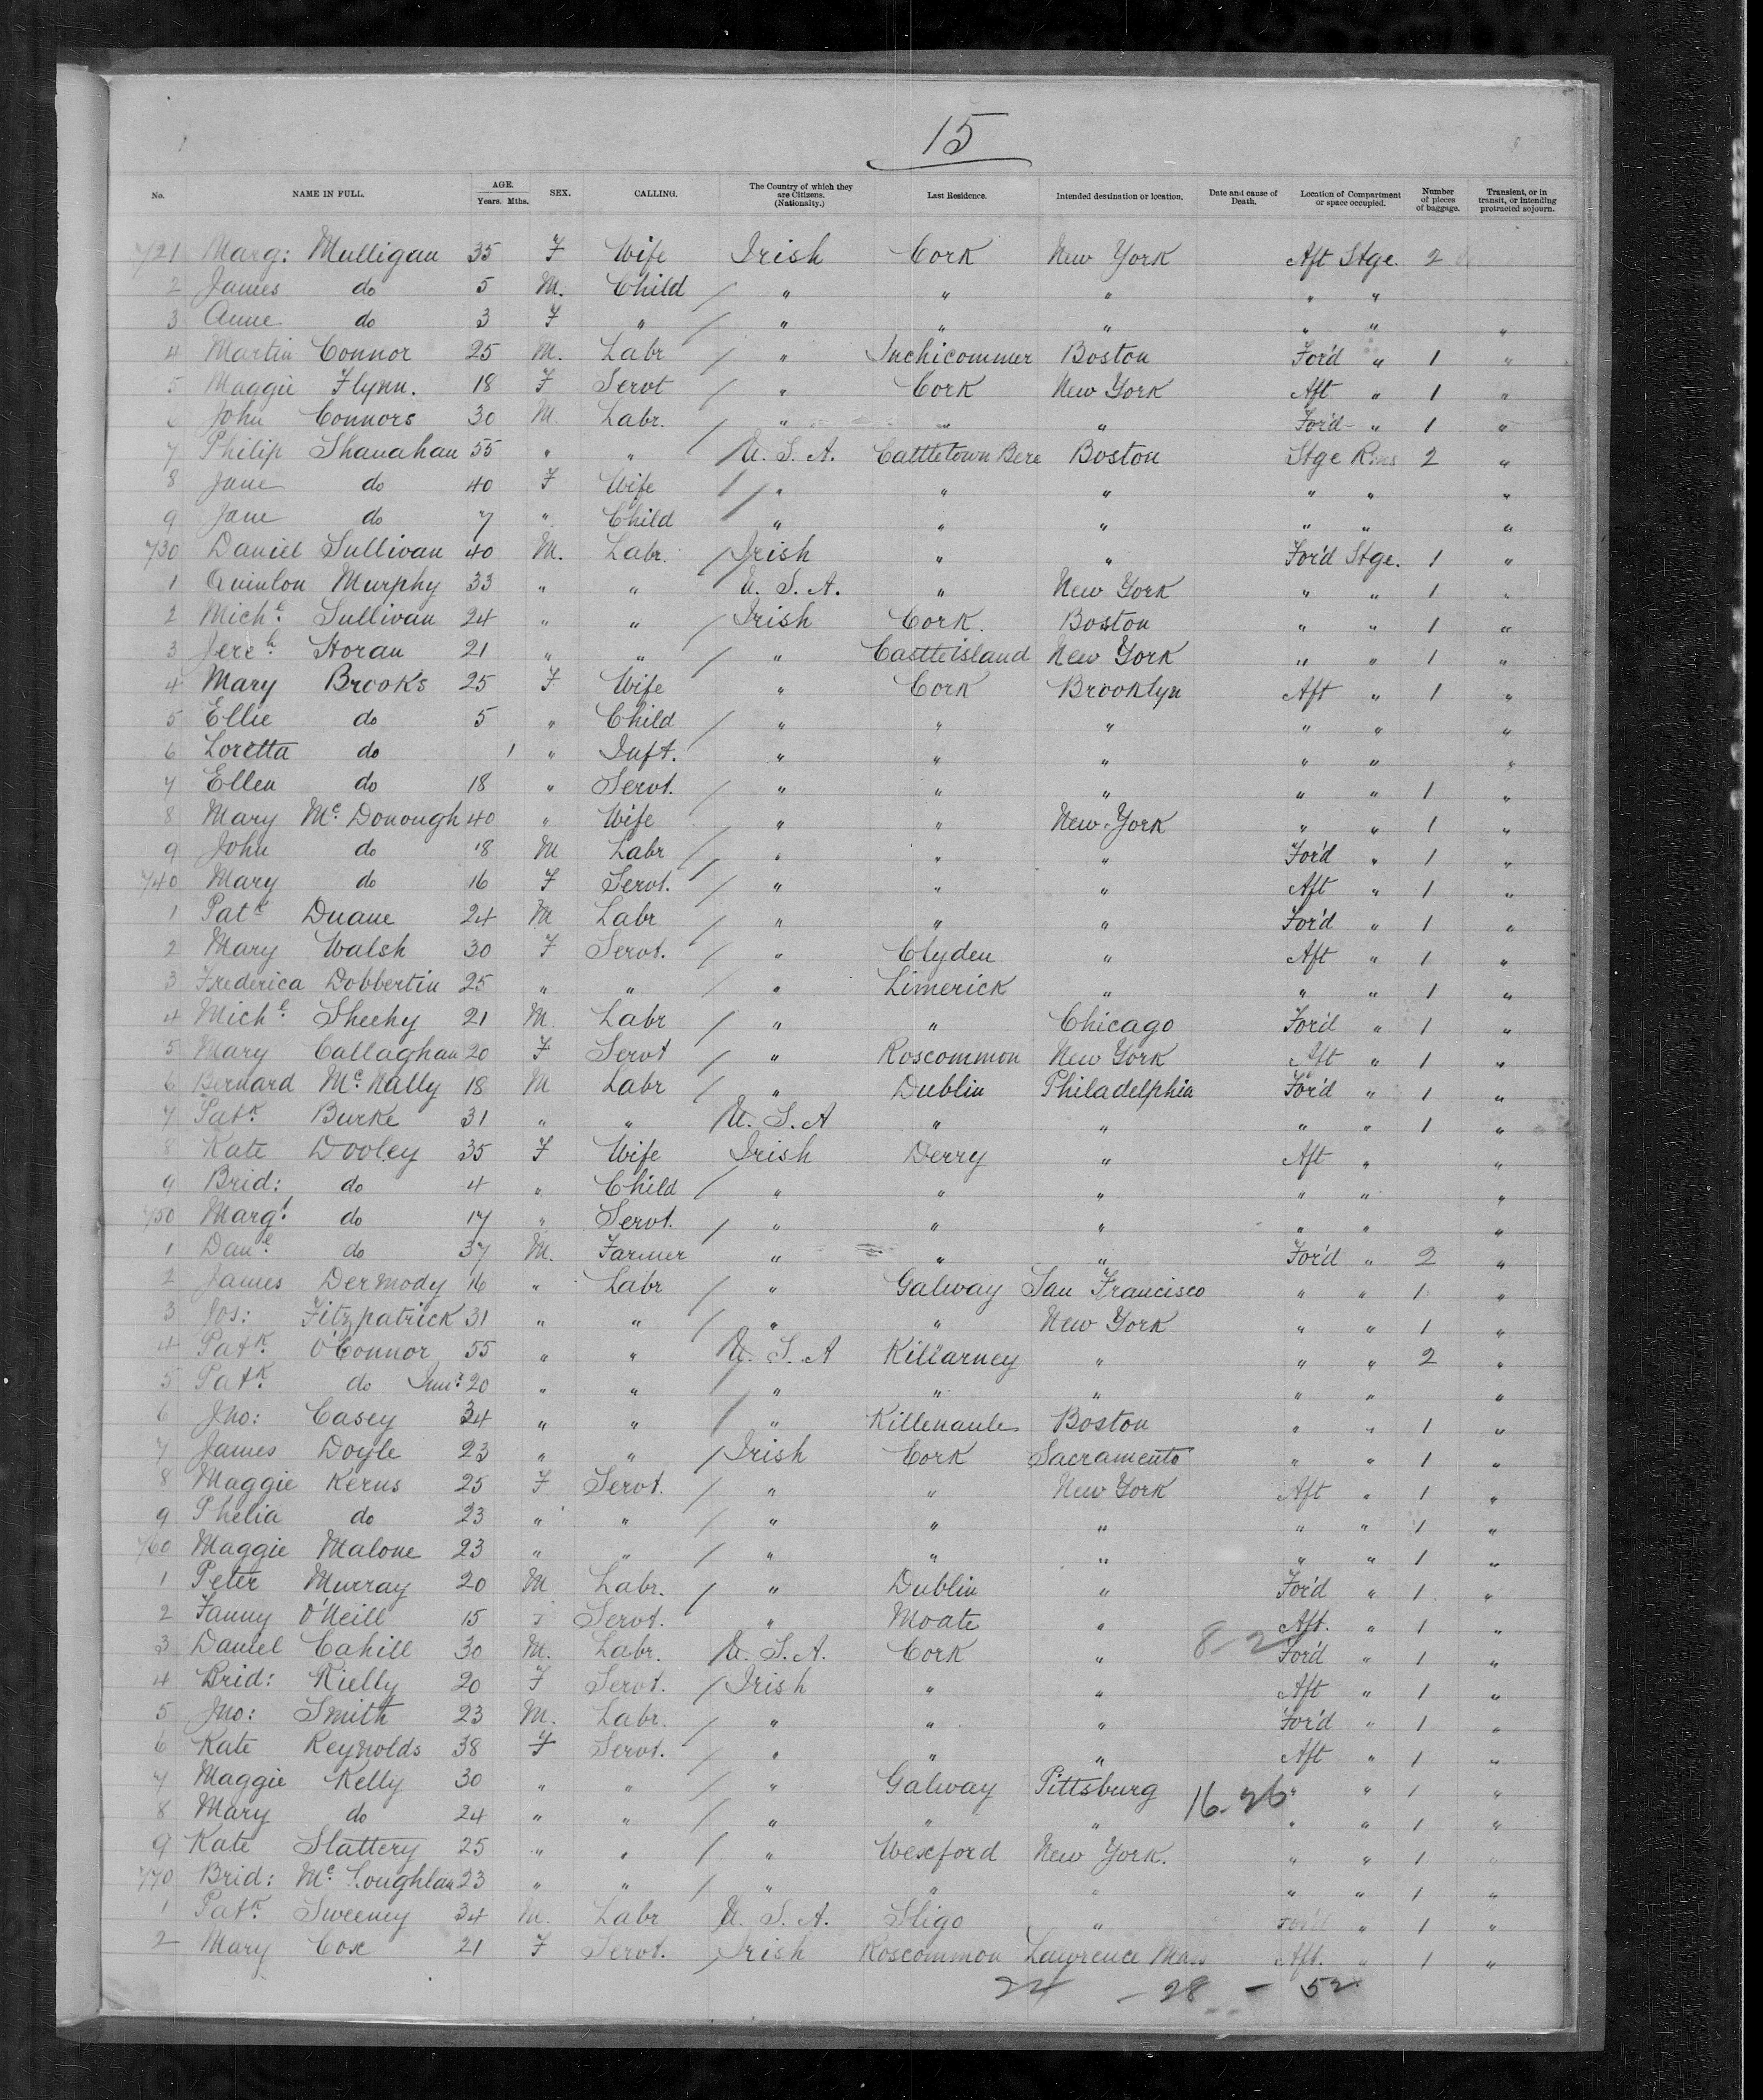 15
No. NAME IN FULL. AGE. Years. Mths. SEX. CALLING. The Country of which they are Citizens. (Nationalty.) Last Residence. Intended destination or location. Date and cause of Death. Location of Compartment or space occupied. Number of pieces of baggage. Transient, or in transit, or intending protracted sojourn.
721 Marg: Mulligan 35 F Wife Irish Cork New York Aft Stge. 2
2 James do 5 M. Child / " " " " "
3 Anne do 3 F " / " " " " " "
4 Martin Connor 25 M. Labr / " Inchicommer Boston For'd " 1 "
5 Maggie Flynn. 18 F Servt / " Cork New York Aft " 1 "
6 John Connors 30 M. Labr. / " " " For'd " 1 "
7 Philip Shanahan 55 " " / U. S. A. Cattletown Bere Boston Stge Rms 2 "
8 Jane do 40 F Wife / " " " " " "
9 Jane do 7 " Child / " " " " " "
730 Daniel Sullivan 40 M. Labr. / Irish " " For'd Stge. 1 "
1 Quinlon Murphy 33 " " U. S. A. " New York " " 1 "
2 Mich.l Sullivan 24 " " / Irish Cork. Boston " " 1 "
3 Jere.h Horan 21 " " / " Castleisland New York " " 1 "
4 Mary Brooks 25 F Wife " Cork Brooklyn Aft " 1 "
5 Ellie do 5 " Child / " " " " " "
6 Loretta do 1 " Inft. " " " " " "
7 Ellen do 18 " Servt. / " " " " " 1 "
8 Mary Mc. Donough 40 " Wife / " " New York " " 1 "
9 John do 18 M Labr / " " " For'd " 1 "
740 Mary do 16 F Servt. / " " " Aft " 1 "
1 Pat.k Duane 24 M Labr / " " " For'd " 1 "
2 Mary Walsh 30 F Servt. / " Clyden " Aft " 1 "
3 Frederica Dobbertin 25 " " / " Limerick " " " 1 "
4 Mich.l Sheehy 21 M. Labr / " " Chicago For'd " 1 "
5 Mary Callaghan 20 F Servt / " Roscommon New York Aft " 1 "
6 Bernard Mc. Nally 18 M Labr / " Dublin Philadelphia For'd " 1 "
7 Pat.k Burke 31 " " / U. S. A " " " " 1 "
8 Kate Dooley 35 F Wife Irish Derry " Aft " "
9 Brid: do 4 " Child / " " " " " "
750 Marg.t do 17 " Servt. / " " " " " "
1 Dan.l do 37 M. Farmer " " " For'd " 2 "
2 James Dermody 16 " Labr / " Galway San Francisco " " 1 "
3 Jos: Fitzpatrick 31 " " / " " New York " " 1 "
4 Pat.k O'Connor 55 " " / U. S. A Killarney " " " 2 "
5 Pat.k do Jun.r 20 " " / " " " " " "
6 Jno: Casey 34 " " / " Killenaule Boston " " 1 "
7 James Doyle 23 " " / Irish Cork Sacramento " " 1 "
8 Maggie Kerns 25 F Servt. / " " New York Aft " 1 "
9 Phelia do 23 " " / " " " " " 1 "
760 Maggie Malone 23 " " / " " " " " 1 "
1 Peter Murray 20 M Labr. / " Dublin " For'd " 1 "
2 Fanny O'Neill 15 F Servt. " Moate " Aft. " 1 "
3 Daniel Cahill 30 M. Labr. / U. S. A. Cork " 8-2 For'd " 1 "
4 Brid: Rielly 20 F Servt. / Irish " " Aft " 1 "
5 Jno: Smith 23 M. Labr. / " " " For'd " 1 "
6 Kate Reynolds 38 F Servt. / " " " Aft " 1 "
7 Maggie Kelly 30 " " / " Galway Pittsburg 16-26 " " 1 "
8 Mary do 24 " " / " " " " " 1 "
9 Kate Slattery 25 " " / " Wexford New York. " " 1 "
770 Brid: Mc. Loughlan 23 " " / " " " " " 1 "
1 Pat.k Sweeney 34 M. Labr U. S. A. Sligo " For'd " 1 "
2 Mary Cox 21 F Servt. / Irish Roscommon Lawrence Mass Aft. " 1 "
24 - 28 - 52